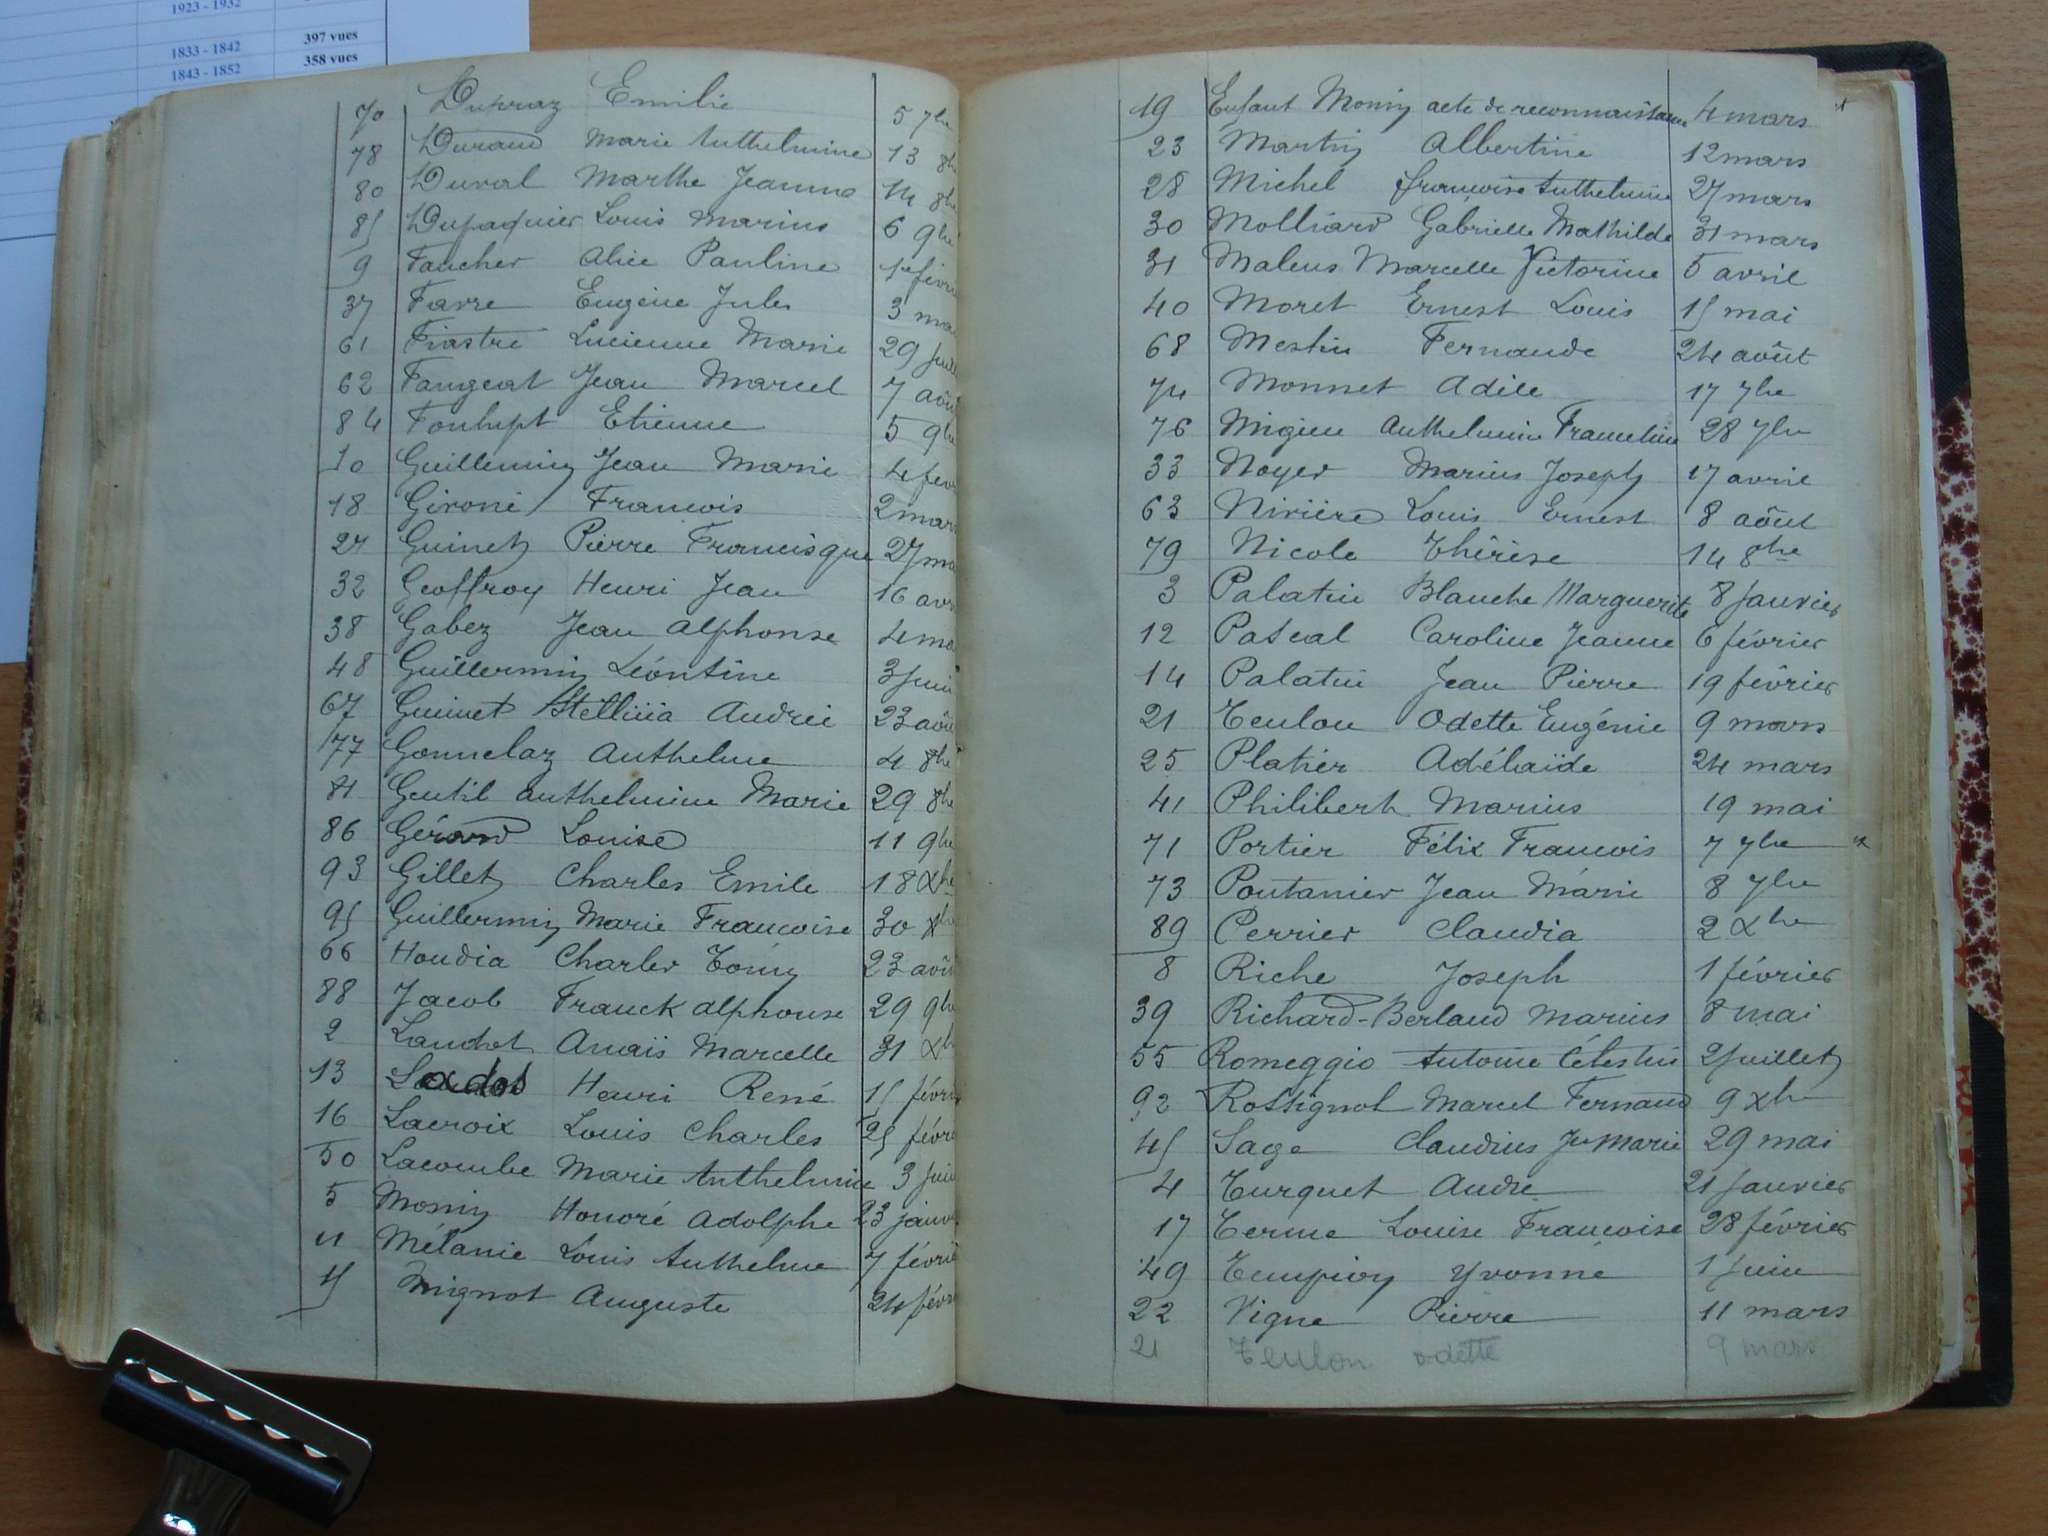 1923 - 1932
397 vues
1833 - 1842
358 vues
1843 - 1852
70 Dupraz Emilie 5 7bre
78 Durand Marie Anthelmine 13 8b
80 Duval Marthe Jeanne 14 8bre
85 Dupaquier Louis Marius 6 9bre
9 Faucher Alice Pauline 1er févri
37 Favre Eugène Jules 3 ma
61 Fiastre Lucienne Marie 29 Juil
62 Faugeat Jean Marcel 7 aoû
84 Etienne 5 9bre
10 Guillemin Jean Marie 4 fevr
18 Gironé Francois 2 mars
27 Guinet Pierre Francisque 27 ma
32 Geoffroy Henri Jean 16 avr
38 Gabez Jean Alphonse 4 ma
48 Guillermin Léontine 3 Juin
67 Guinet Andrée 23 aoû
77 Gonnelaz Anthelme 4 8bre
81 Gentil Anthelmine Marie 29 8bre
86 Gérard Louise 11 9bre
93 Gillet Charles Emile 18 Xbre
95 Guillermin Marie Francoise 30 Xbre
66 Houdia Charles 23 aoû
88 Jacob Franck Alphonse 29 9bre
2 Anaïs Marcelle 31 Xb
13 Henri René 15 févri
16 Lacroix Louis Charles 25 févr
50 Lacombe Marie Anthelmine 3 Juin
5 Monin Honoré Adolphe 23 janv
11 Mélanie Louis Anthelme 7 févri
15 Mignot Auguste 24 févr
19 Enfant Monin acte de reconnaissance 4 mars
23 Martin Albertine 12 mars
28 Michel francoise Anthelmine 27 mars
30 Molliard Gabrielle Mathilde 31 mars
31 Maleus Marcelle Victorine 5 avril
40 Moret Ernest Louis 15 mai
68 Mestin Fernande 24 août
74 Monnet Adèle 17 7bre
76 Migieu Anthelmine Franceline 28 7bre
33 Noyer Marius Joseph 17 avril
63 Nivière Louis Ernest 8 août
79 Nicole Thérèse 14 8bre
3 Palatin Blanche Marguerite 8 Janvier
12 Pascal Caroline Jeanne 6 février
14 Palatin Jean Pierre 19 février
21 Teulon Odette Eugénie 9 mars
25 Platier Adélaïde 24 mars
41 Philibert Marius 19 mai
71 Portier Félix Francois 7 7bre
73 Pontanier Jean Marie 8 7bre
89 Perrier Claudia 2 Xbre
8 Riche Joseph 1 février
39 Richard-Berland Marius 8 mai
55 Romeggio Antoine Célestin 2 Juillet
92 Rossignol Marcel Fernand 9 Xbre
45 Sage Claudius Jn Marie 29 mai
4 Turquet André 21 Janvier
17 Terme Louise Francoise 28 février
49 Tempion Yvonne 1 Juin
22 Vigne Pierre 11 mars
21 Teulon odette 9 mars